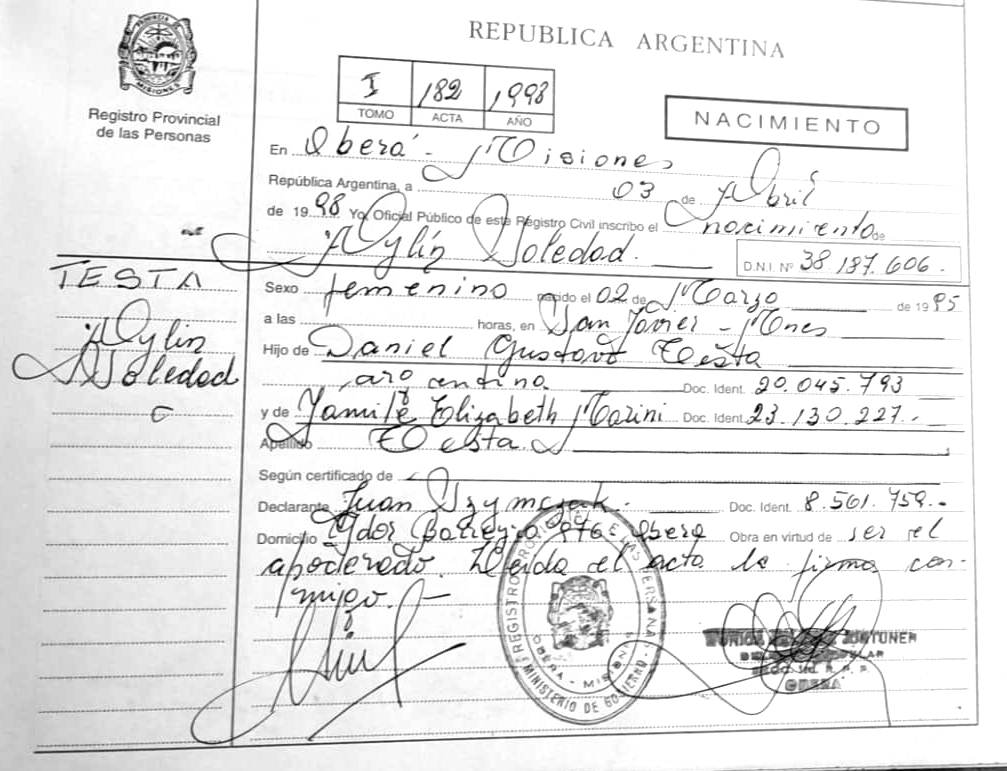 REPUBLICA ARGENTINA
PROVINCIA DE MISIONES
Registro Provincial
de las Personas
I 182 1998
TOMO ACTA AÑO
NACIMIENTO
En Oberá - Misiones
República Argentina, a 03 de Abril
de 1998 Yo, Oficial Público de este Registro Civil inscribo el nacimiento de
Aylín Soledad.
D.N.I. Nº 38 187.606.
TESTA
Aylin
Soledad
Sexo femenino nacido el 02 de Marzo de 1995
a las horas, en San Javier - Mnes
Hijo de Daniel Gustavo Testa
argentina Doc. Ident. 20.045.793
y de Yamile Elizabeth Marini Doc. Ident. 23.130.227.-
Apellido Testa.
Según certificado de
Declarante Juan Szymczak. Doc. Ident. 8.561.759.-
Domicilio Obera Obra en virtud de ser el
apoderado. Leída el acta la firma con-
migo. -
REGISTRO PROVINCIAL DE LAS PERSONAS
OBERA - MISIONES
MINISTERIO DE GOBIERNO
OBERA